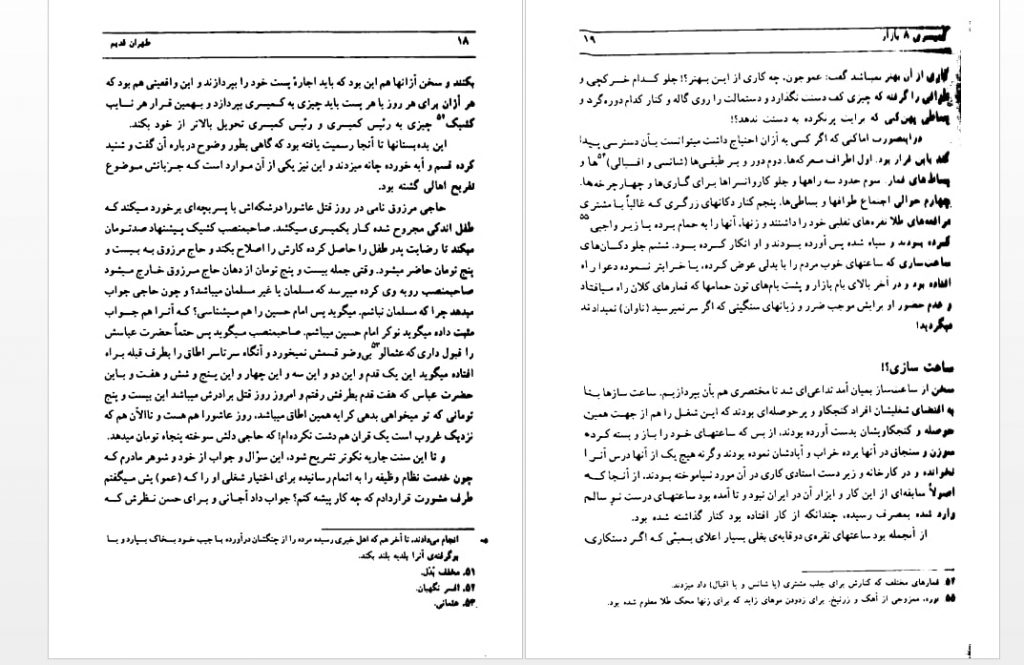 ۱۸ طهران قدیم
بکنند و سخن آژانها هم این بود که باید اجارهٔ پست خود را بپردازند و این واقعیتی هم بود که
هر آژان برای هر روز یا هر پست باید چیزی به کمیسری بپردازد و بهمین قرار هر نایب
کشیک۵۲ چیزی به رئیس کمیسری و رئیس کمیسری تحویل بالاتر از خود بکند.
این بده بستانها تا آنجا رسمیت یافته بود که گاهی بطور وضوح درباره آن گفت و شنید
کرده قسم و آیه خورده چانه میزدند و این نیز یکی از آن موارد است که جزیانش موضوع
تفریح اهالی گشته بود.
حاجی مرزوق نامی در روز قتل عاشورا درشکه‌اش با پسربچه‌ای برخورد میکند که
طفل اندکی مجروح شده کار بکمیسری میکشد. صاحبمنصب کشیک پیشنهاد صدتومان
میکند تا رضایت پدر طفل را حاصل کرده کارش را اصلاح بکند و حاج مرزوق به بیست و
پنج تومان حاضر میشود. وقتی جمله بیست و پنج تومان از دهان حاج مرزوق خارج میشود
صاحبمنصب رو به وی کرده میپرسد که مسلمان یا غیر مسلمان میباشد؟ و چون حاجی جواب
میدهد چرا که مسلمان نباشم. میگوید پس امام حسین را هم میشناسی؟ که آنرا هم جواب
مثبت داده میگوید نوکر امام حسین میباشم. صاحبمنصب میگوید پس حتماً حضرت عباسش
را قبول داری که عثمانلو۵۳ بی‌وضو قسمش نمیخورد و آنگاه سر تاسر اطاق را بطرف قبله براه
افتاده میگوید این یک قدم و این دو و این سه و این چهار و این پنج و شش و هفت و باین
حضرت عباس که هفت قدم بطرفش رفتم و امروز روز قتل برادرش میباشد این بیست و پنج
تومانی که تو میخواهی بدهی کرایه همین اطاق میباشد، روز عاشورا هم هست و تاالآن هم که
نزدیک غروب است یک قران هم دشت نکرده‌ام! که حاجی دلش سوخته پنجاه تومان میدهد.
و تا این سنت جاریه نکوتر تشریح شود، این سؤال و جواب از خود و شوهر مادرم که
چون خدمت نظام وظیفه را به اتمام رسانیده برای اختیار شغلی او را که (عمو) یش میگفتم
طرف مشورت قراردادم که چه کار پیشه کنم؟ جواب داد آجانی و برای حسن نظرش که
انجام می‌دادند، تا آخر هم که اهل خبری رسیده مرده را از چنگشان درآورده با جیب خود بخاک بسپارد و یا
برگرفته‌ی آنرا بلدیه بلند بکند.
۵۱. مخفف پُدُل.
۵۲. افسر نگهبان.
۵۳. عثمانی.
کمیسری ۸ بازار ۱۹
کاری از آن بهتر نمیباشد گفت: عموجون، چه کاری از این بهتر؟! جلو کدام خرکچی و
طوافی را گرفته که چیزی کف دستت نگذارد و دستمالت را روی گاله و کنار کدام دوره‌گرد و
بساطی پهن کی که برایت پرنکرده به دستت ندهد؟!
دراینصورت اماکی که اگر کسی به آژان احتیاج داشت میتوانست بآن دسترسی پیدا
کند باین قرار بود. اول اطراف معرکه‌ها. دوم دور و بر طبقی‌ها (شانسی و اقبالی)۵۴ها و
بساط‌های قمار. سوم حدود سه راهها و جلو کاروانسراها برای گاری‌ها و چهارچرخه‌ها.
چهارم حوالی اجتماع طوافها و بساطی‌ها. پنجم کنار دکانهای زرگری که غالباً با مشتری
مرافعه‌های طلا نقره‌های تقلبی خود را داشتند و زنها، آنها را به حمام برده با زیر واجبی۵۵
کرده بودند و سیاه شده پس آورده بودند و او انکار کرده بود. ششم جلو دکان‌های
ساعت‌سازی که ساعتهای خوب مردم را با بدلی عوض کرده، یا خرابتر نموده دعوا راه
افتاده بود و در آخر بالای بام بازار و پشت بام‌های تون حمامها که قمارهای کلان راه میافتاد
و عدم حضور او برایش موجب ضرر و زیانهای سنگینی که اگر سر نمیرسید (تاوان) نمیدادند
میگردید!
ساعت سازی؟!
سخن از ساعت‌ساز بمیان آمد تداعی‌ای شد تا مختصری هم بآن بپردازیم. ساعت سازها بنا
به اقتضای شغلیشان افراد کنجکاو و پرحوصله‌ای بودند که این شغل را هم از جهت همین
حوصله و کنجکاویشان بدست آورده بودند، از بس که ساعتهای خود را باز و بسته کرده
سوزن و سنجاق در آنها برده خراب و آبادشان نموده بودند وگرنه هیچ یک از آنها درس آنرا
نخوانده و در کارخانه و زیر دست استادی کاری در آن مورد نیاموخته بودند. از آنجا که
اصولاً سابقه‌ای از این کار و ابزار آن در ایران نبود و تا آمده بود ساعتهای درست نو سالم
وارد شده بمصرف رسیده، چندانکه از کار افتاده بود کنار گذاشته شده بود.
از آنجمله بود ساعتهای نقره‌ی دوقاپه‌ی بغلی بسیار اعلای بمبئی که اگر دستکاری،
۵۴. قمارهای مختلف که کنارش برای جلب مشتری (یا شانس و یا اقبال) داد میزدند.
۵۵ نوره، ممزوجی از آهک و زرنیخ. برای زدودن موهای زاید که برای زنها محک طلا معلوم شده بود.